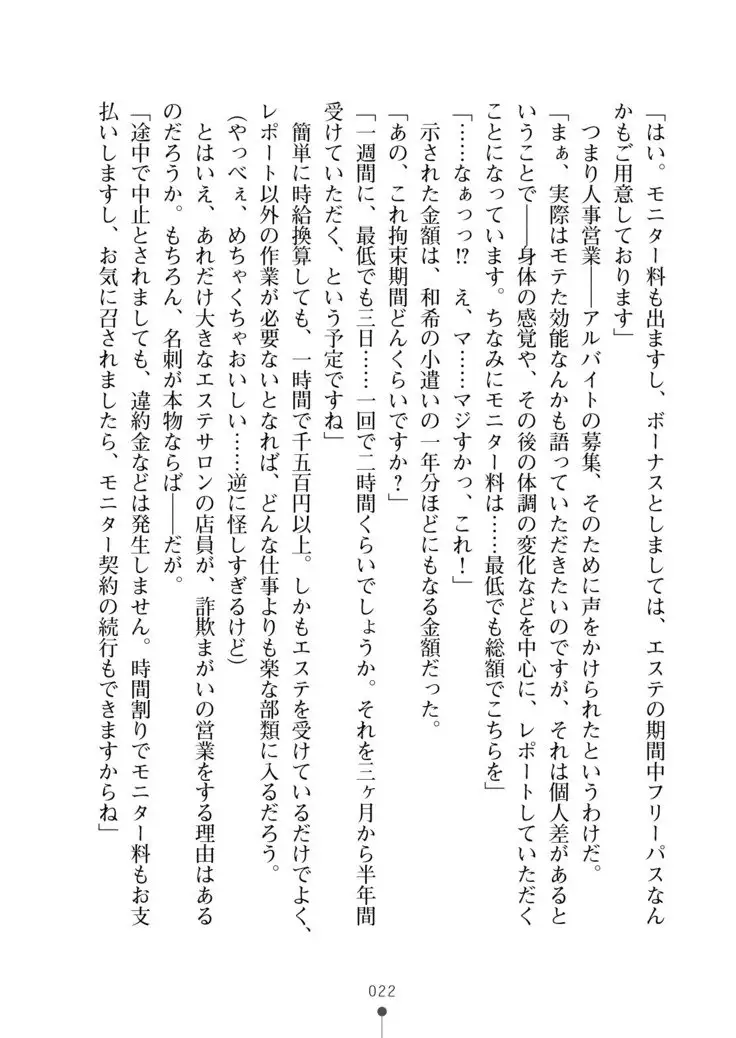 「はい。モニター料も出ますし、ボーナスとしましては、エステの期間中フリーパスなん
かもご用意しております」
　つまり人事営業――アルバイトの募集、そのために声をかけられたというわけだ。
「まぁ、実際はモテた効能なんかも語っていただきたいのですが、それは個人差があると
いうことで――身体の感覚や、その後の体調の変化などを中心に、レポートしていただく
ことになっています。ちなみにモニター料は……最低でも総額でこちらを」
「……なぁっっ!?　え、マ……マジすかっ、これ！」
　示された金額は、和希の小遣いの一年分ほどにもなる金額だった。
「あの、これ拘束期間どんくらいですか？」
「一週間に、最低でも三日……一回で二時間くらいでしょうか。それを三ヶ月から半年間
受けていただく、という予定ですね」
　簡単に時給換算しても、一時間で千五百円以上。しかもエステを受けているだけでよく、
レポート以外の作業が必要ないとなれば、どんな仕事よりも楽な部類に入るだろう。
（やっべぇ、めちゃくちゃおいしい……逆に怪しすぎるけど）
　とはいえ、あれだけ大きなエステサロンの店員が、詐欺まがいの営業をする理由はある
のだろうか。もちろん、名刺が本物ならば――だが。
「途中で中止とされましても、違約金などは発生しません。時間割りでモニター料もお支
払いしますし、お気に召されましたら、モニター契約の続行もできますからね」
022